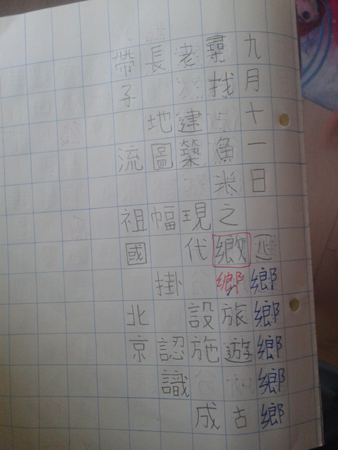 九月十一日鄉鄉鄉鄉鄉
尋找魚米之鄉鄉旅遊古
老建築現代設施成
長地圖幅掛認識
帶子流祖國北京